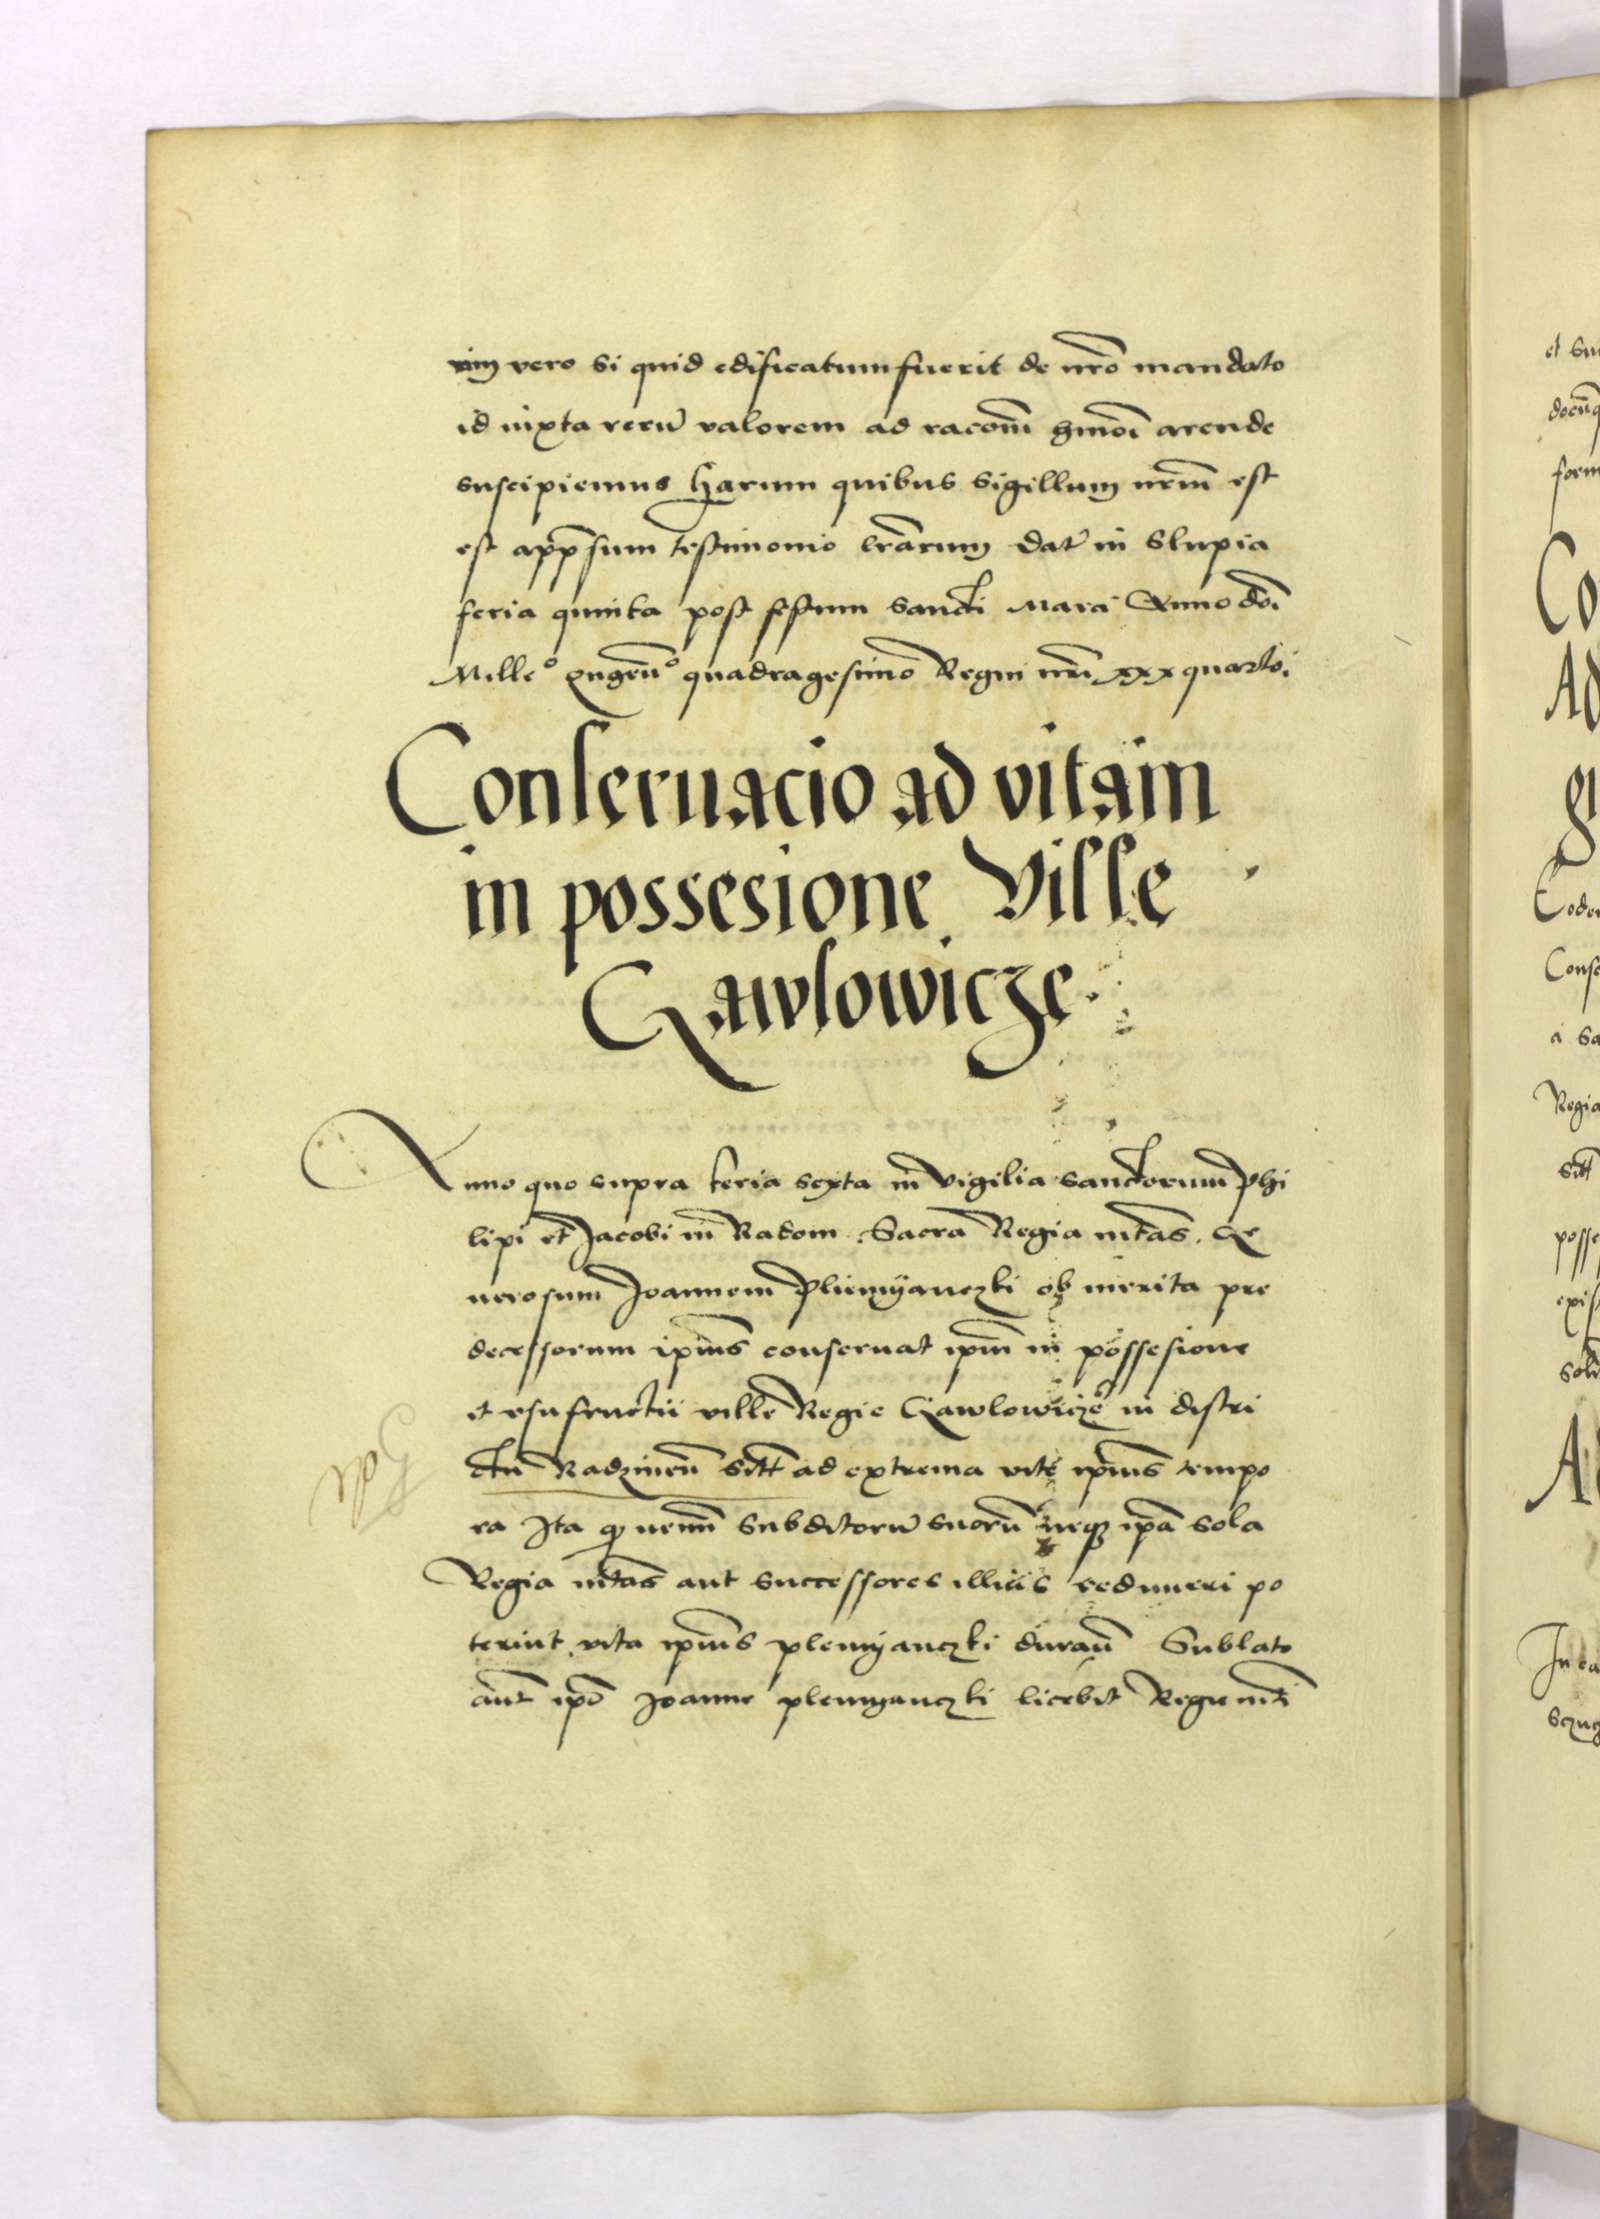 vm vero si quid edificatum fuerit de nr̃o mandato
id iuxta reru̅ valorem ad racoem̃ hm̃oi arende
suscipiemus Harum quibus sigillum nrm̃ est
est app̃sum testimonio lr̃arum dat̃ in Slupia
feria quinta post festum sancti Marci Anno dnĩ
Milleᵒ qngenᵒ quadragesimo Regni nri xxx quarto.
Conseruacio ad vitam
in possesione Ville
Gawlowicze.
Anno quo supra feria sexta in vigilia sanctorum Phi
lipi et Jacobi in Radom. Sacra Regia mtãs. Ge
nerosum Joannem Pliemÿanczki ob merita pre
decessorum ipiũs conseruat ipm̃ in possesione
et vsufructu ville Regie Gawlowicze in distri
ctu Radzinen̄ sitt̃ ad extrema vite ipiũs tempo
ra Ita ꝙ nemi̅ subditoru̅ suoru̅ neqꝫ ip̃a sola
Regia mtãs aut successores illius redimeri po
terint vita ipiũs plemÿanczki duran̄ Sublato
aut̃ ip̃o Joanne plemyanczki licebit Regie mti